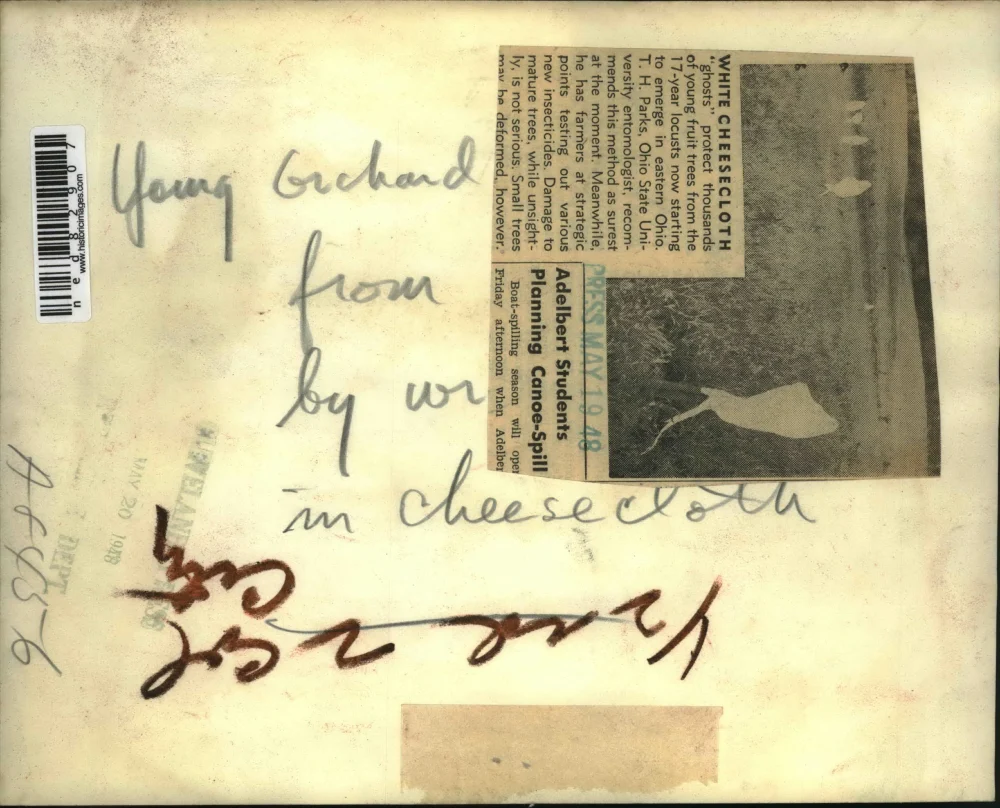 Young Orchard
from
by
in cheesecloth
WHITE CHEESECLOTH
"ghosts" protect thousands
of young fruit trees from the
17-year locusts now starting
to emerge in eastern Ohio.
T. H. Parks, Ohio State Uni-
versity entomologist, recom-
mends this method as surest
at the moment. Meanwhile,
he has farmers at strategic
points testing out various
new insecticides. Damage to
mature trees, while unsight-
ly, is not serious. Small trees
may be deformed, however.
PRESS MAY 19 48
Adelbert Students
Planning Canoe-Spill
Boat-spilling season will open
Friday afternoon when Adelber
www.historicimages.com
ned82907
MAY 20 1948
DEPT
2 Col